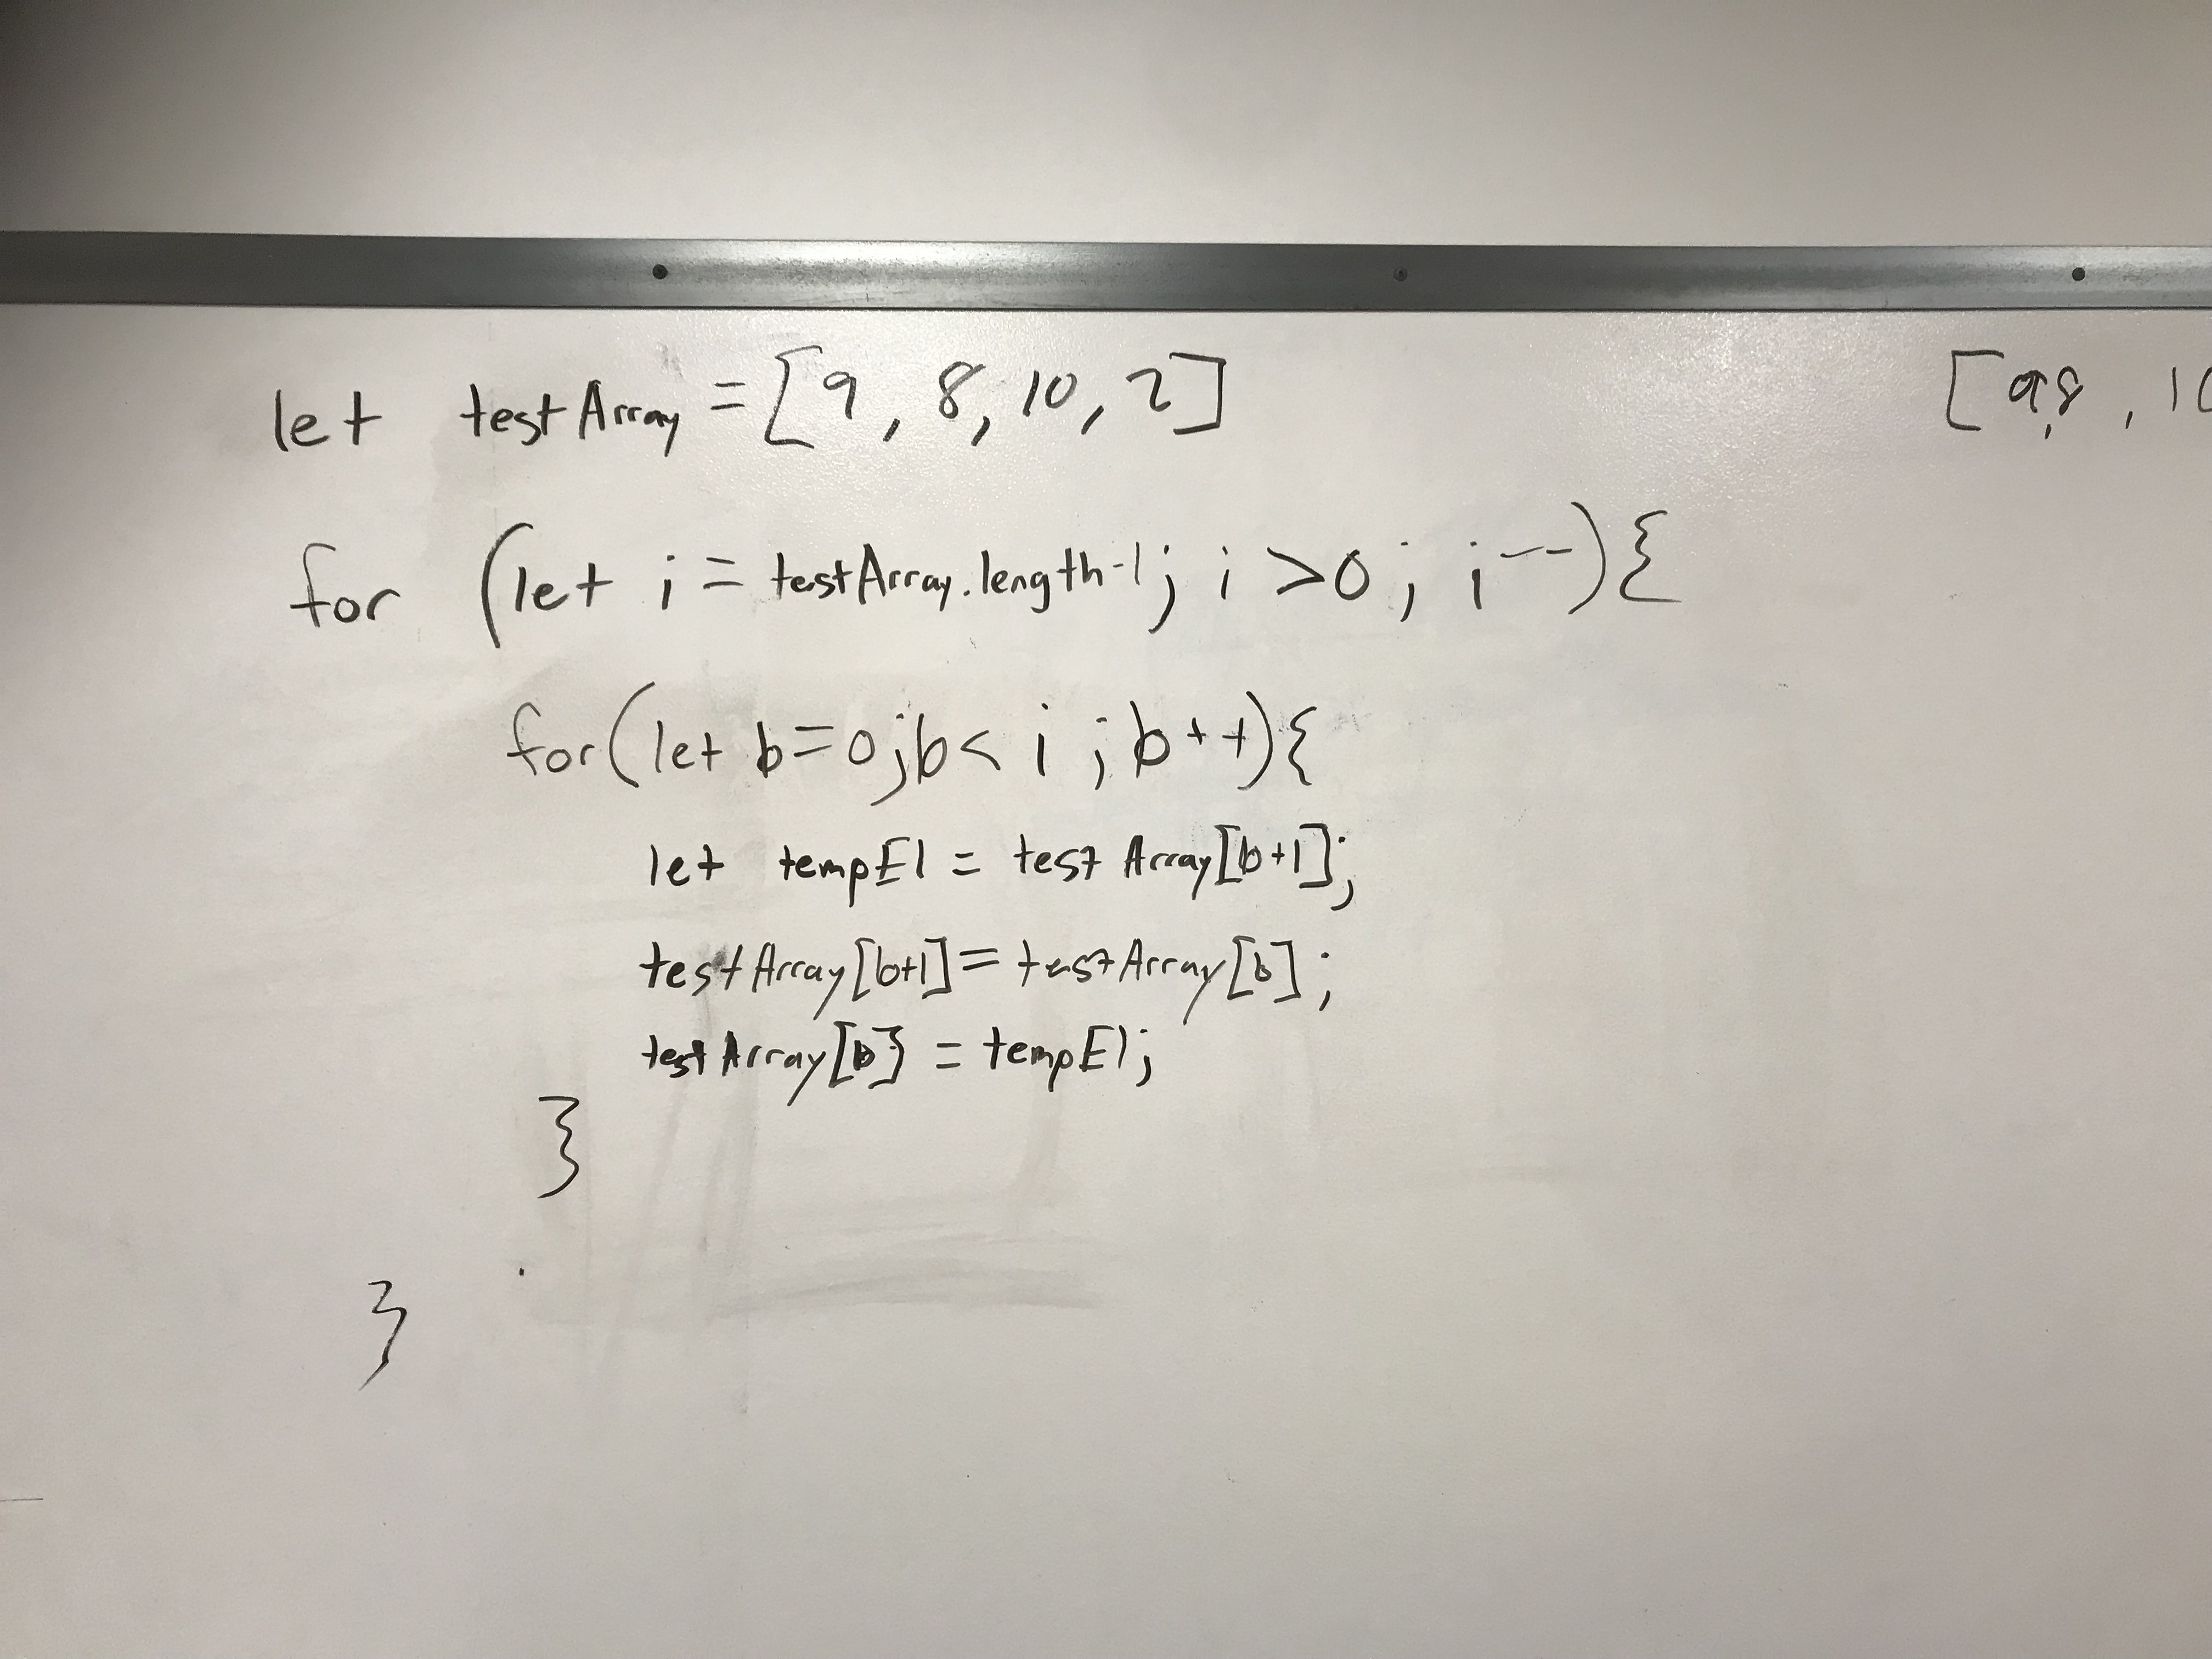 let testArray = [9, 8, 10, 2]
[9,8, 10
for (let i = testArray.length-1; i >0; i--){
for(let b=0;b< i ;b++){
let tempEl = testArray[b+1];
testArray[b+1]=testArray[b];
testArray[b] = tempEl;
}
}